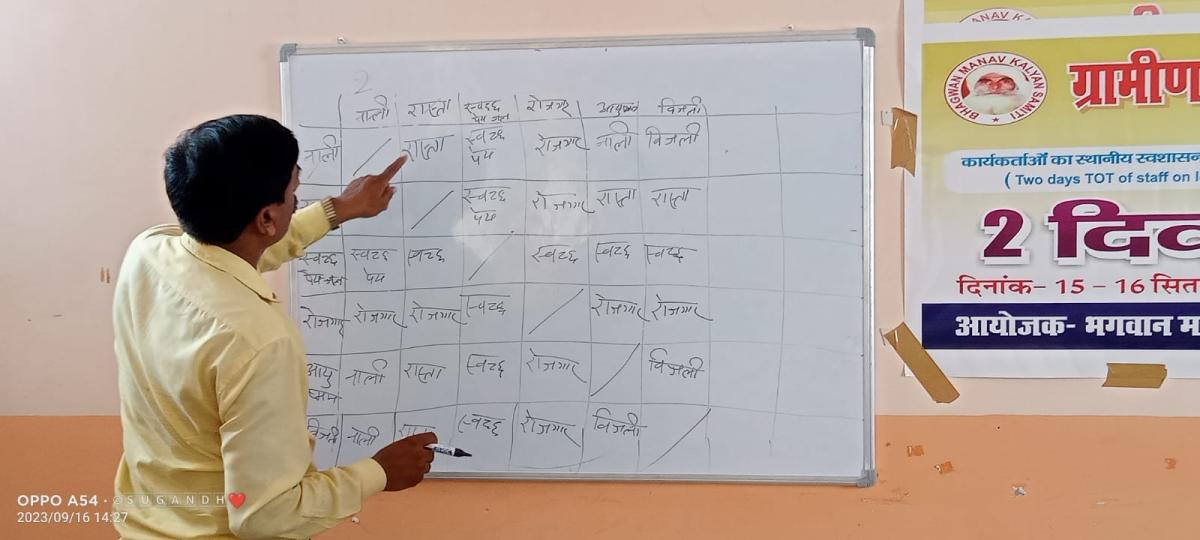 2
नाली रास्ता स्वच्छ पेय जल रोजगार आयुष्मान बिजली
नाली रास्ता स्वच्छ पेय रोजगार नाली बिजली
स्वच्छ पेय रोजगार रास्ता रास्ता
स्वच्छ पेय जल स्वच्छ पेय स्वच्छ स्वच्छ स्वच्छ स्वच्छ
रोजगार रोजगार रोजगार स्वच्छ रोजगार रोजगार
आयुष्मान नाली रास्ता स्वच्छ रोजगार बिजली
बिजली नाली स्वच्छ रोजगार बिजली
BHAGWAN MANAV KALYAN SAMITI
ग्रामीण
कार्यकर्ताओं का स्थानीय स्वशासन
( Two days TOT of staff on
2
दिनांक- 15 - 16 सित
आयोजक- भगवान
OPPO A54 · ©SUGANDH❤️
2023/09/16 14:27